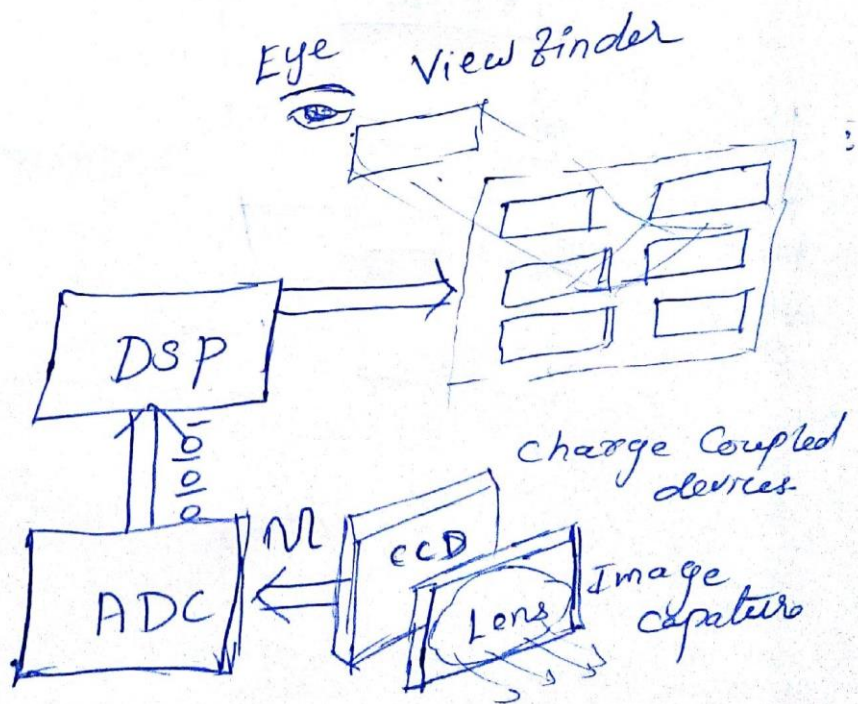 Eye View Finder
DSP
Charge Coupled
devices
CCD
ADC
Lens
Image
capature